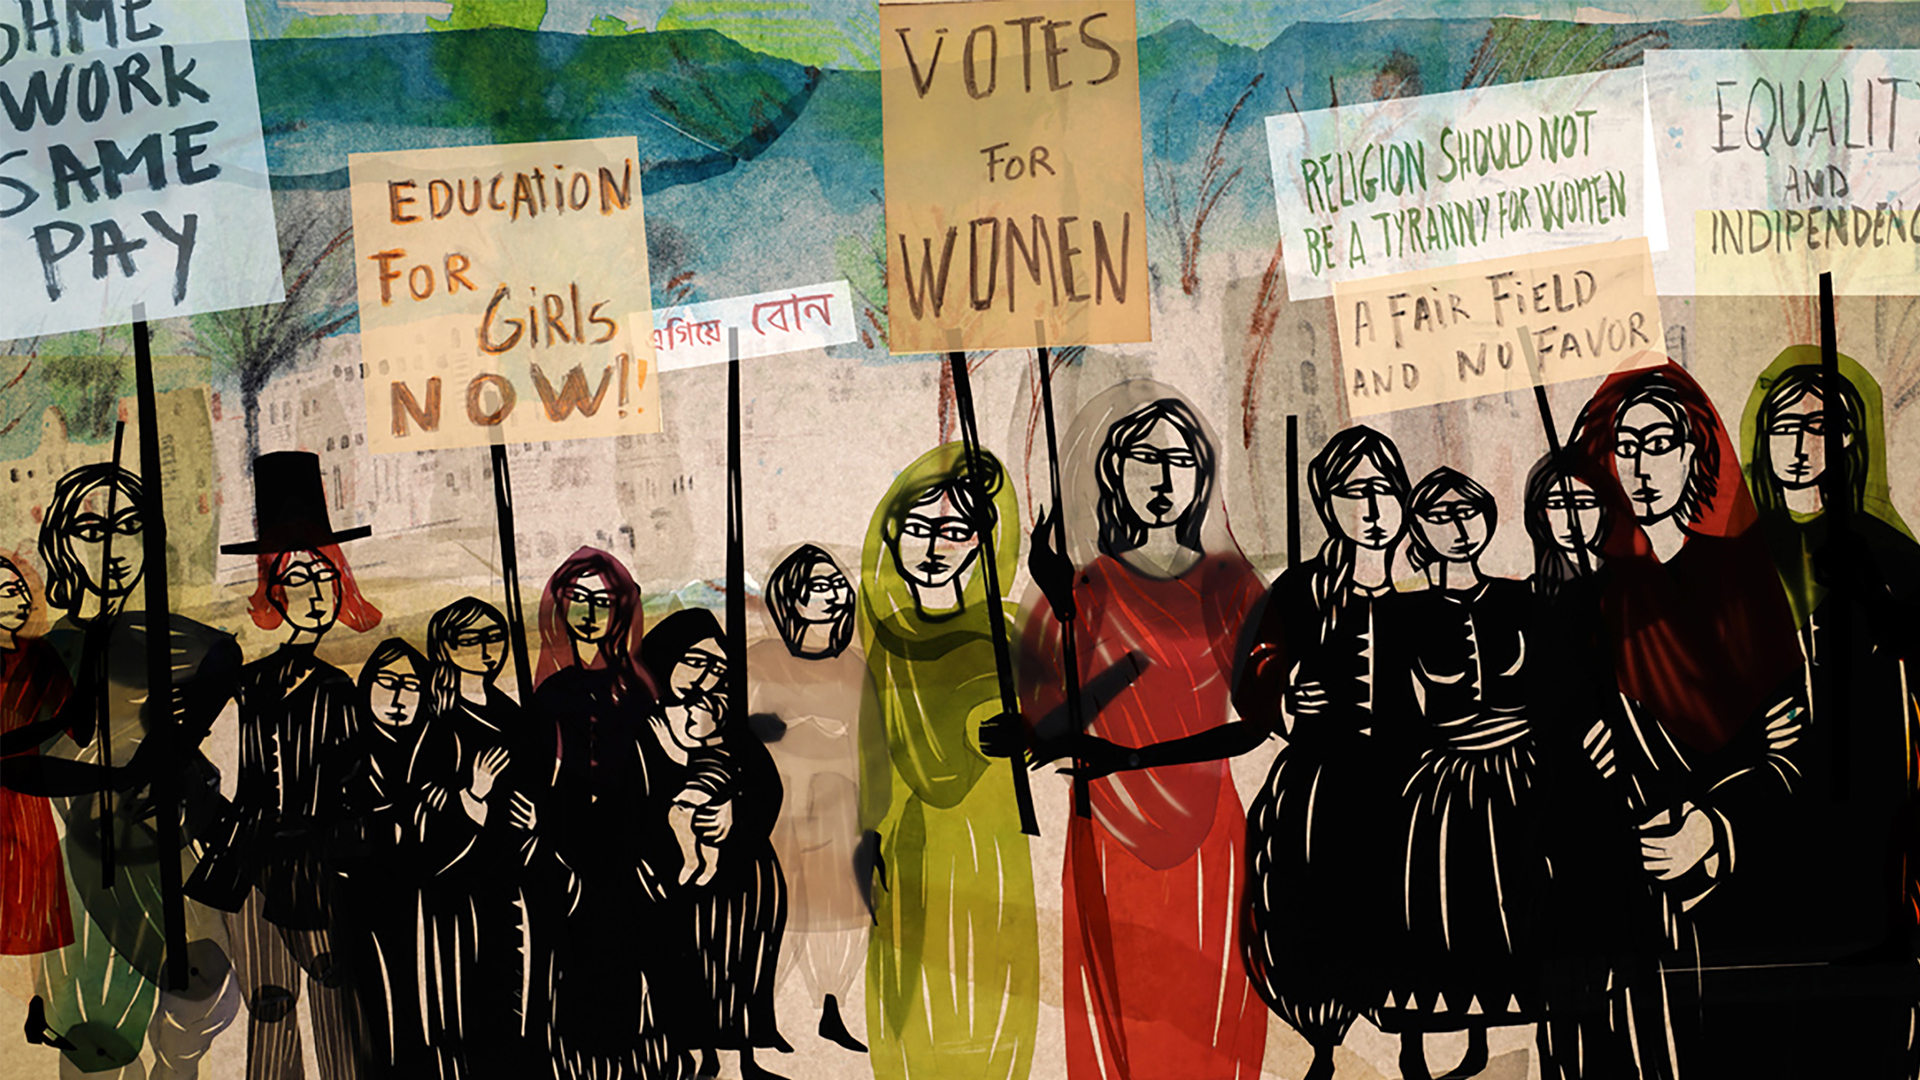 SAME
WORK
SAME
PAY
EDUCATiON
FOR
GiRls
NOW!!
এগিয়ে বোন
VOTES
FOR
WOMEN
RELIGION SHOULD NOT
BE A TYRANNY FOR WOMEN
A FAIR FiELD
AND NO FAVOR
EQUALITY
AND
INDIPENDENC